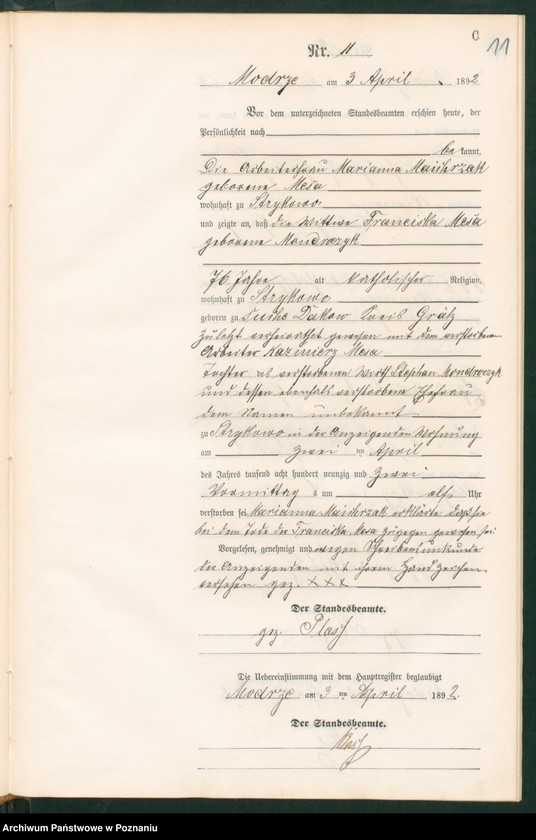 11
Nr. 11
Modrze am 3 April 1892
Vor dem unterzeichneten Standesbeamten erschien heute, der
Persönlichkeit nach
be kannt,
Die Arbeiterfrau Marianna
geborene Mesa
wohnhaft zu Strykowo
und zeigte an, daß die Wittwe Franciska Mesa
geborene Mondrczyk
76 Jahre alt katholischer Religion,
wohnhaft zu Strykowo
geboren zu Dakow Kreis Grätz
zuletzt verheirathet gewesen mit dem verstorbenen
Arbeiter Kazimierz Mesa
Tochter des verstorbenen Wirth Stephan Mondrczyk
und dessen ebenfalls verstorbene Ehefrau
dem Namen unbekannt
zu Strykowo in der Anzeigenden Wohnung
am zwei ten April
des Jahres tausend acht hundert neunzig und zwei
Vormittag s um elf Uhr
verstorben sei Marianna erklärte daß sie
bei dem Tode der Franciska Mesa zugegen gewesen sei
Vorgelesen, genehmigt und wegen Schreibensunkunde
der Anzeigenden mit ihrem Handzeichen
versehen gez. XXX
Der Standesbeamte.
gez
Die Uebereinstimmung mit dem Hauptregister beglaubigt
Modrze am 3 ten April 1892.
Der Standesbeamte.
Archiwum Państwowe w Poznaniu